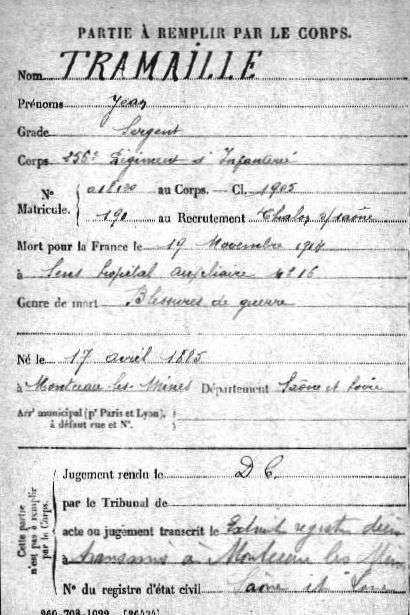 PARTIE À REMPLIR PAR LE CORPS.
Nom TRAMAILLE
Prénoms Jean
Grade Sergent
Corps 256e Régiment d'Infanterie
N° Matricule. au Corps. — Cl. 1905
190 au Recrutement Chalon s/saône
Mort pour la France le 19 Novembre 1914
à Sens hopital auxiliaire n° 16
Genre de mort Blessures de guerre
Né le 17 avril 1885
à Montceau-les-Mines Département Saône et Loire
Arr' municipal (p' Paris et Lyon),
à défaut rue et N°.
Cette partie n'est pas à remplir par le Corps.
Jugement rendu le D C.
par le Tribunal de
acte ou jugement transcrit le Extrait registre décès
à transmis à Montceau les Mines
N° du registre d'état civil Saone et Loire